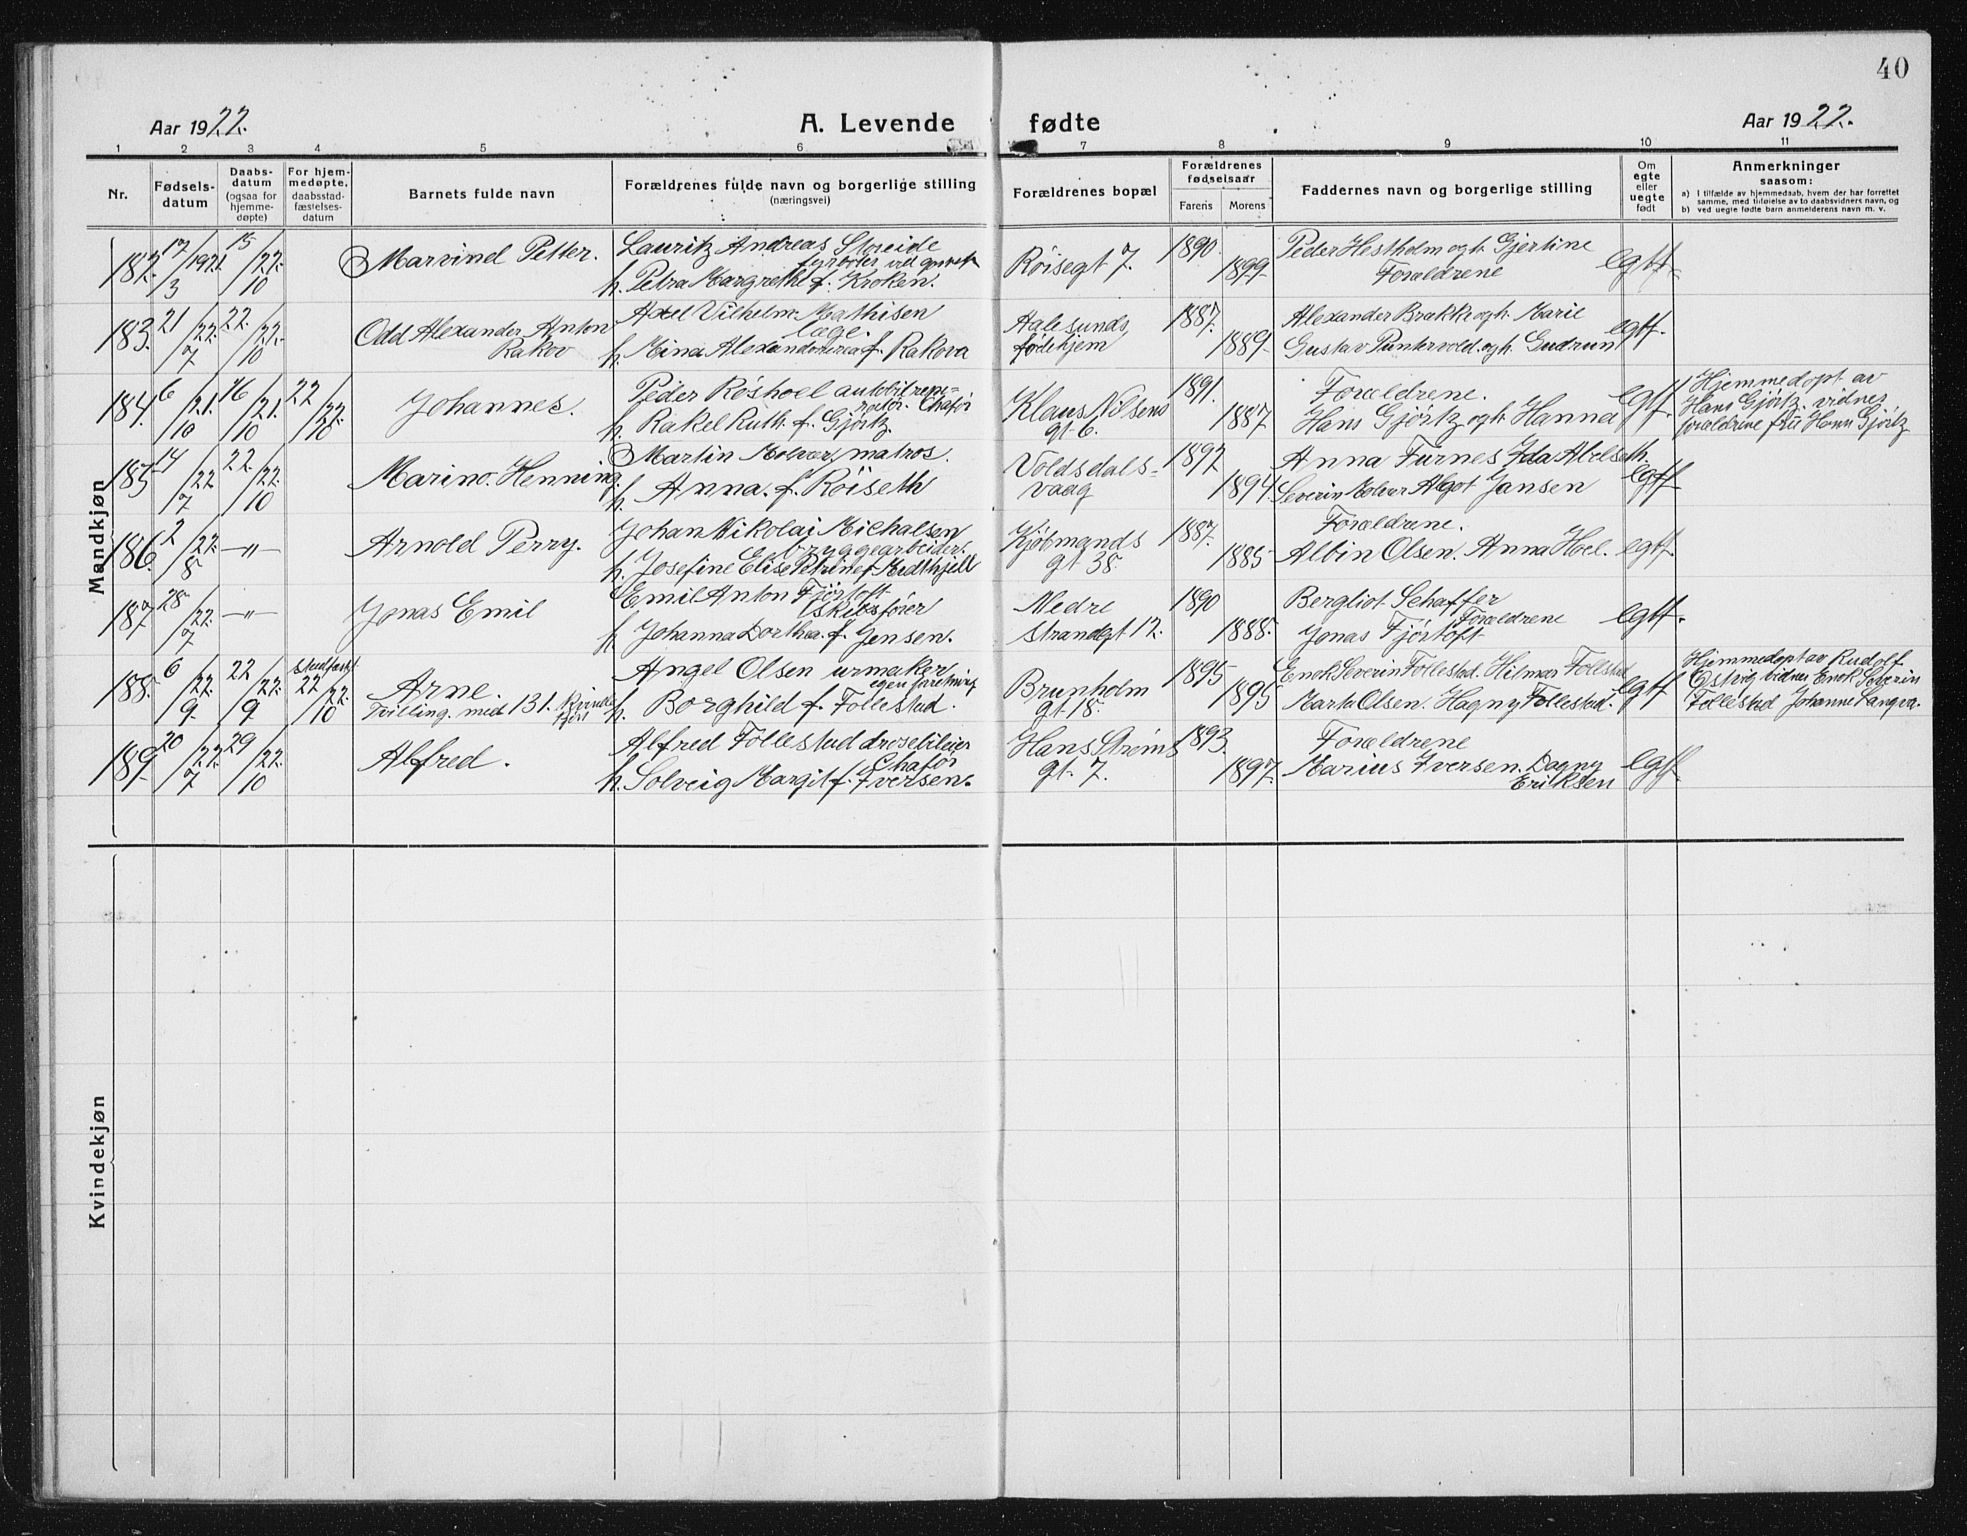 40
Aar 1922. A. Levende fødte Aar 1922.
1 2 3 4 5 6 7 8 9 10 11
Nr.
Fødsels-
datum
Daabs-
datum
(ogsaa for
hjemme-
døpte)
For hjem-
medøpte,
daabsstad-
fæstelses-
datum
Barnets fulde navn
Forældrenes fulde navn og borgerlige stilling
(næringsvei)
Forældrenes bopæl
Forældrenes
fødselsaar
Farens Morens
Faddernes navn og borgerlige stilling
Om
egte
eller
uegte
født
Anmerkninger
saasom:
a) I tilfælde av hjemmedaab, hvem der har forrettet
samme, med tilføielse av to daabsvidners navn, og
b) ved uegte fødte barn anmelderens navn m. v.
Mandkjøn
182. 17/3 1921. 15/10 22. Marvind Petter.
Lauritz Andreas Skeide
fyrbøter ved
h. Petra Margrethe f. Kroken.
Röisegt 7. 1890. 1899.
Peder Hestholm og h. Gjertine
Forældrene
Egtf.
183. 21/7 22. 22/10 22. Odd Alexander Anton
Rakov
Axel Vilhelm Mathisen
læge.
h. Mina f. Rakova
Aalesunds
fødehjem
1887. 1889.
Alexander Brakk og h. Marie
Gustav Puntervold. og h. Gudrun
Egtf.
184. 6/10 21. 16/10 21. 22/10 22. Johannes.
Peder Röshoel
Chafør
h. Rakel Ruth. f. Gjörtz.
Klaus Nilsens
gt 6.
1891. 1887
Forældrene.
Hans Gjörtz og h. Hanna
Egtf.
Hjemmedöpt av
Hans Gjörtz. vidner
forældrene fru Hanna Gjörtz
185. 14/7 22. 22/10 22. Marino. Henning.
Martin Molvær, matros.
h. Anna. f. Röiseth
Voldsdals-
vaag
1892 1894.
Anna Furnes Ida Abelseth.
Severin Molvær Algot Jansen
Egtf.
186. 2/8 22. —"— Arnold Perry.
Johan Nikolai Michalsen
bryggearbeider.
h. Josefine Elise Petrine f. Midthjell
Kjöbmands
gt 38.
1887. 1885
Forældrene.
Albin Olsen. Anna Hoel.
Egtf.
187. 28/7 22. —"— Jonas Emil
Emil Anton Fjörtoft
skibsfører
h. Johanna Dorthea. f. Jensen.
Nedre
strandgt 12.
1890 1888.
Bergliot Schaffer
Forældrene
Jonas Fjörtoft
Egtf.
188. 6/9 22. 22/9 22. stadfæst 22/10 22. Arne.
Tvilling. med 131. kvinde
kjøn
Angel Olsen urmaker
egen forretning
h. Borghild f. Follestad.
Brunholm
gt 18.
1895 1895
Enok Severin Follestad. Hilmar Follestad
Marta Olsen. Hagny Follestad.
Egtf
Hjemmedöpt av Rudolf
Espvig. vidner Enok Severin
Follestad Johanne Langva.
189. 20/7 22. 29/10 22. Alfred.
Alfred Follestad droscheeier
Chaför
h. Solveig Margit f. Iversen.
Hans Ströms
gt. 7.
1893. 1897.
Forældrene
Marius Iversen. Dagny
Eriksen
Egtf.
Kvindekjøn